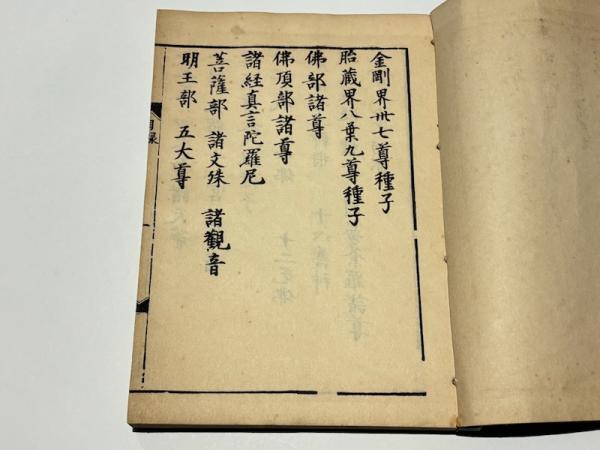 金剛界卅七尊種子
胎蔵界八葉九尊種子
佛部諸尊
佛頂部諸尊
諸経真言陀羅尼
菩薩部 諸文殊 諸觀音
明王部 五大尊
目录